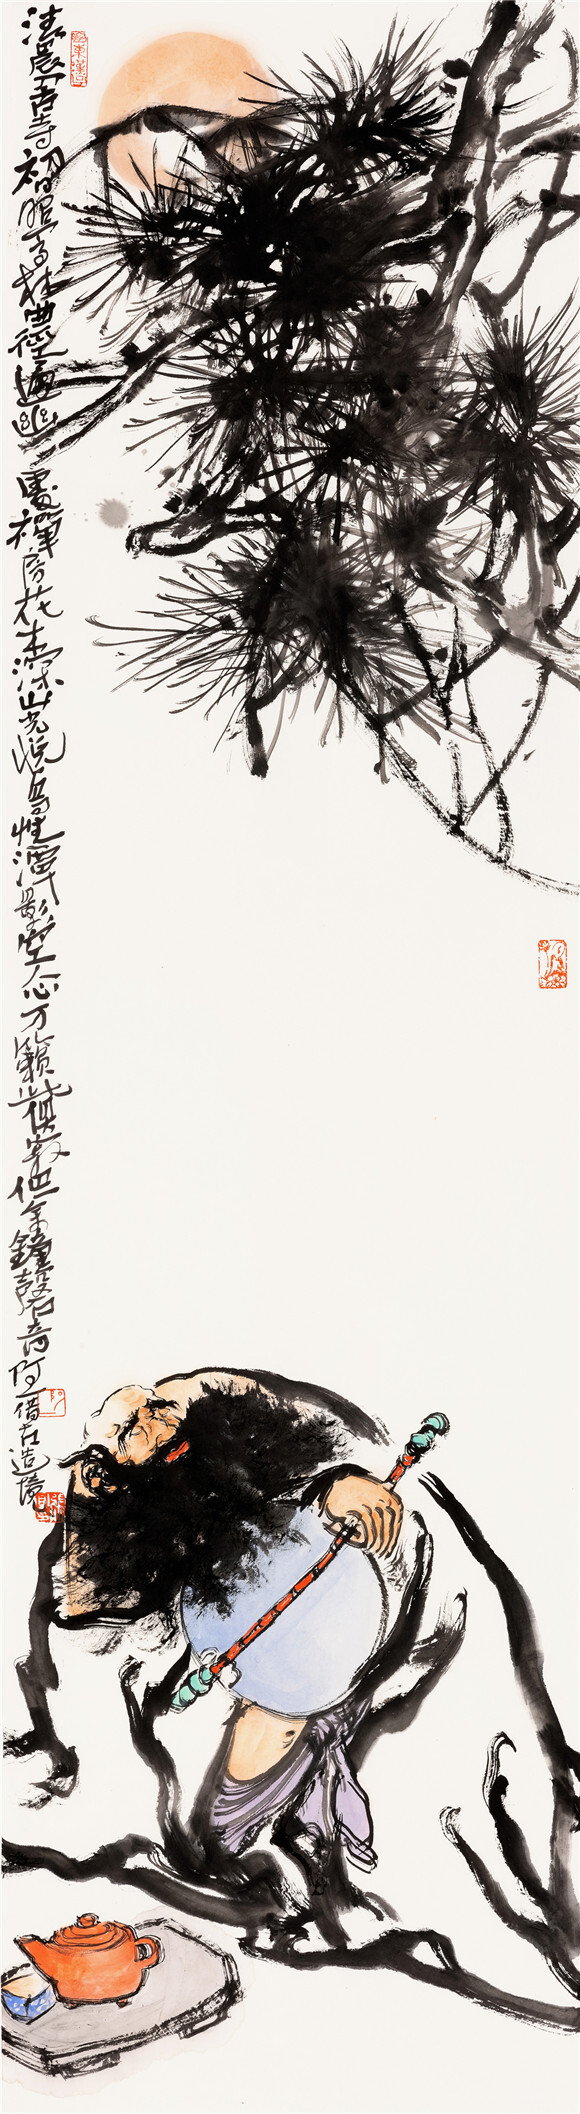 清晨入古寺初日照高林曲徑通幽處禪房花木深山光悅鳥性潭影空人心万籟此俱寂但余鐘磬音阿一借古造境